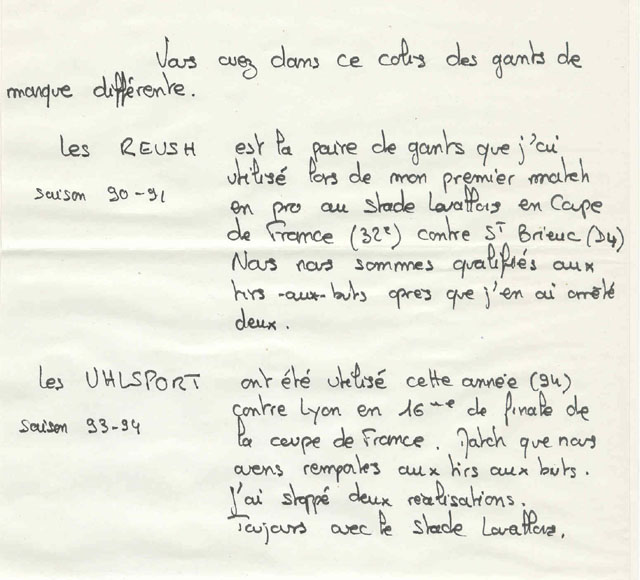 Vous avez dans ce colis des gants de
marque différente.
les REUSH est la paire de gants que j'ai
saison 90-91 utilisé lors de mon premier match
en pro au Stade Lavallois en Coupe
de France (32e) contre ST Brieuc (D4)
Nous nous sommes qualifiés aux
tirs-aux-buts apres que j'en ai arrêté
deux.
les UHLSPORT ont été utilisé cette année (94)
saison 93-94 contre Lyon en 16me de finale de
la coupe de France. Match que nous
avons remportes aux tirs aux buts.
J'ai stoppé deux realisations.
Toujours avec le Stade Lavallois.